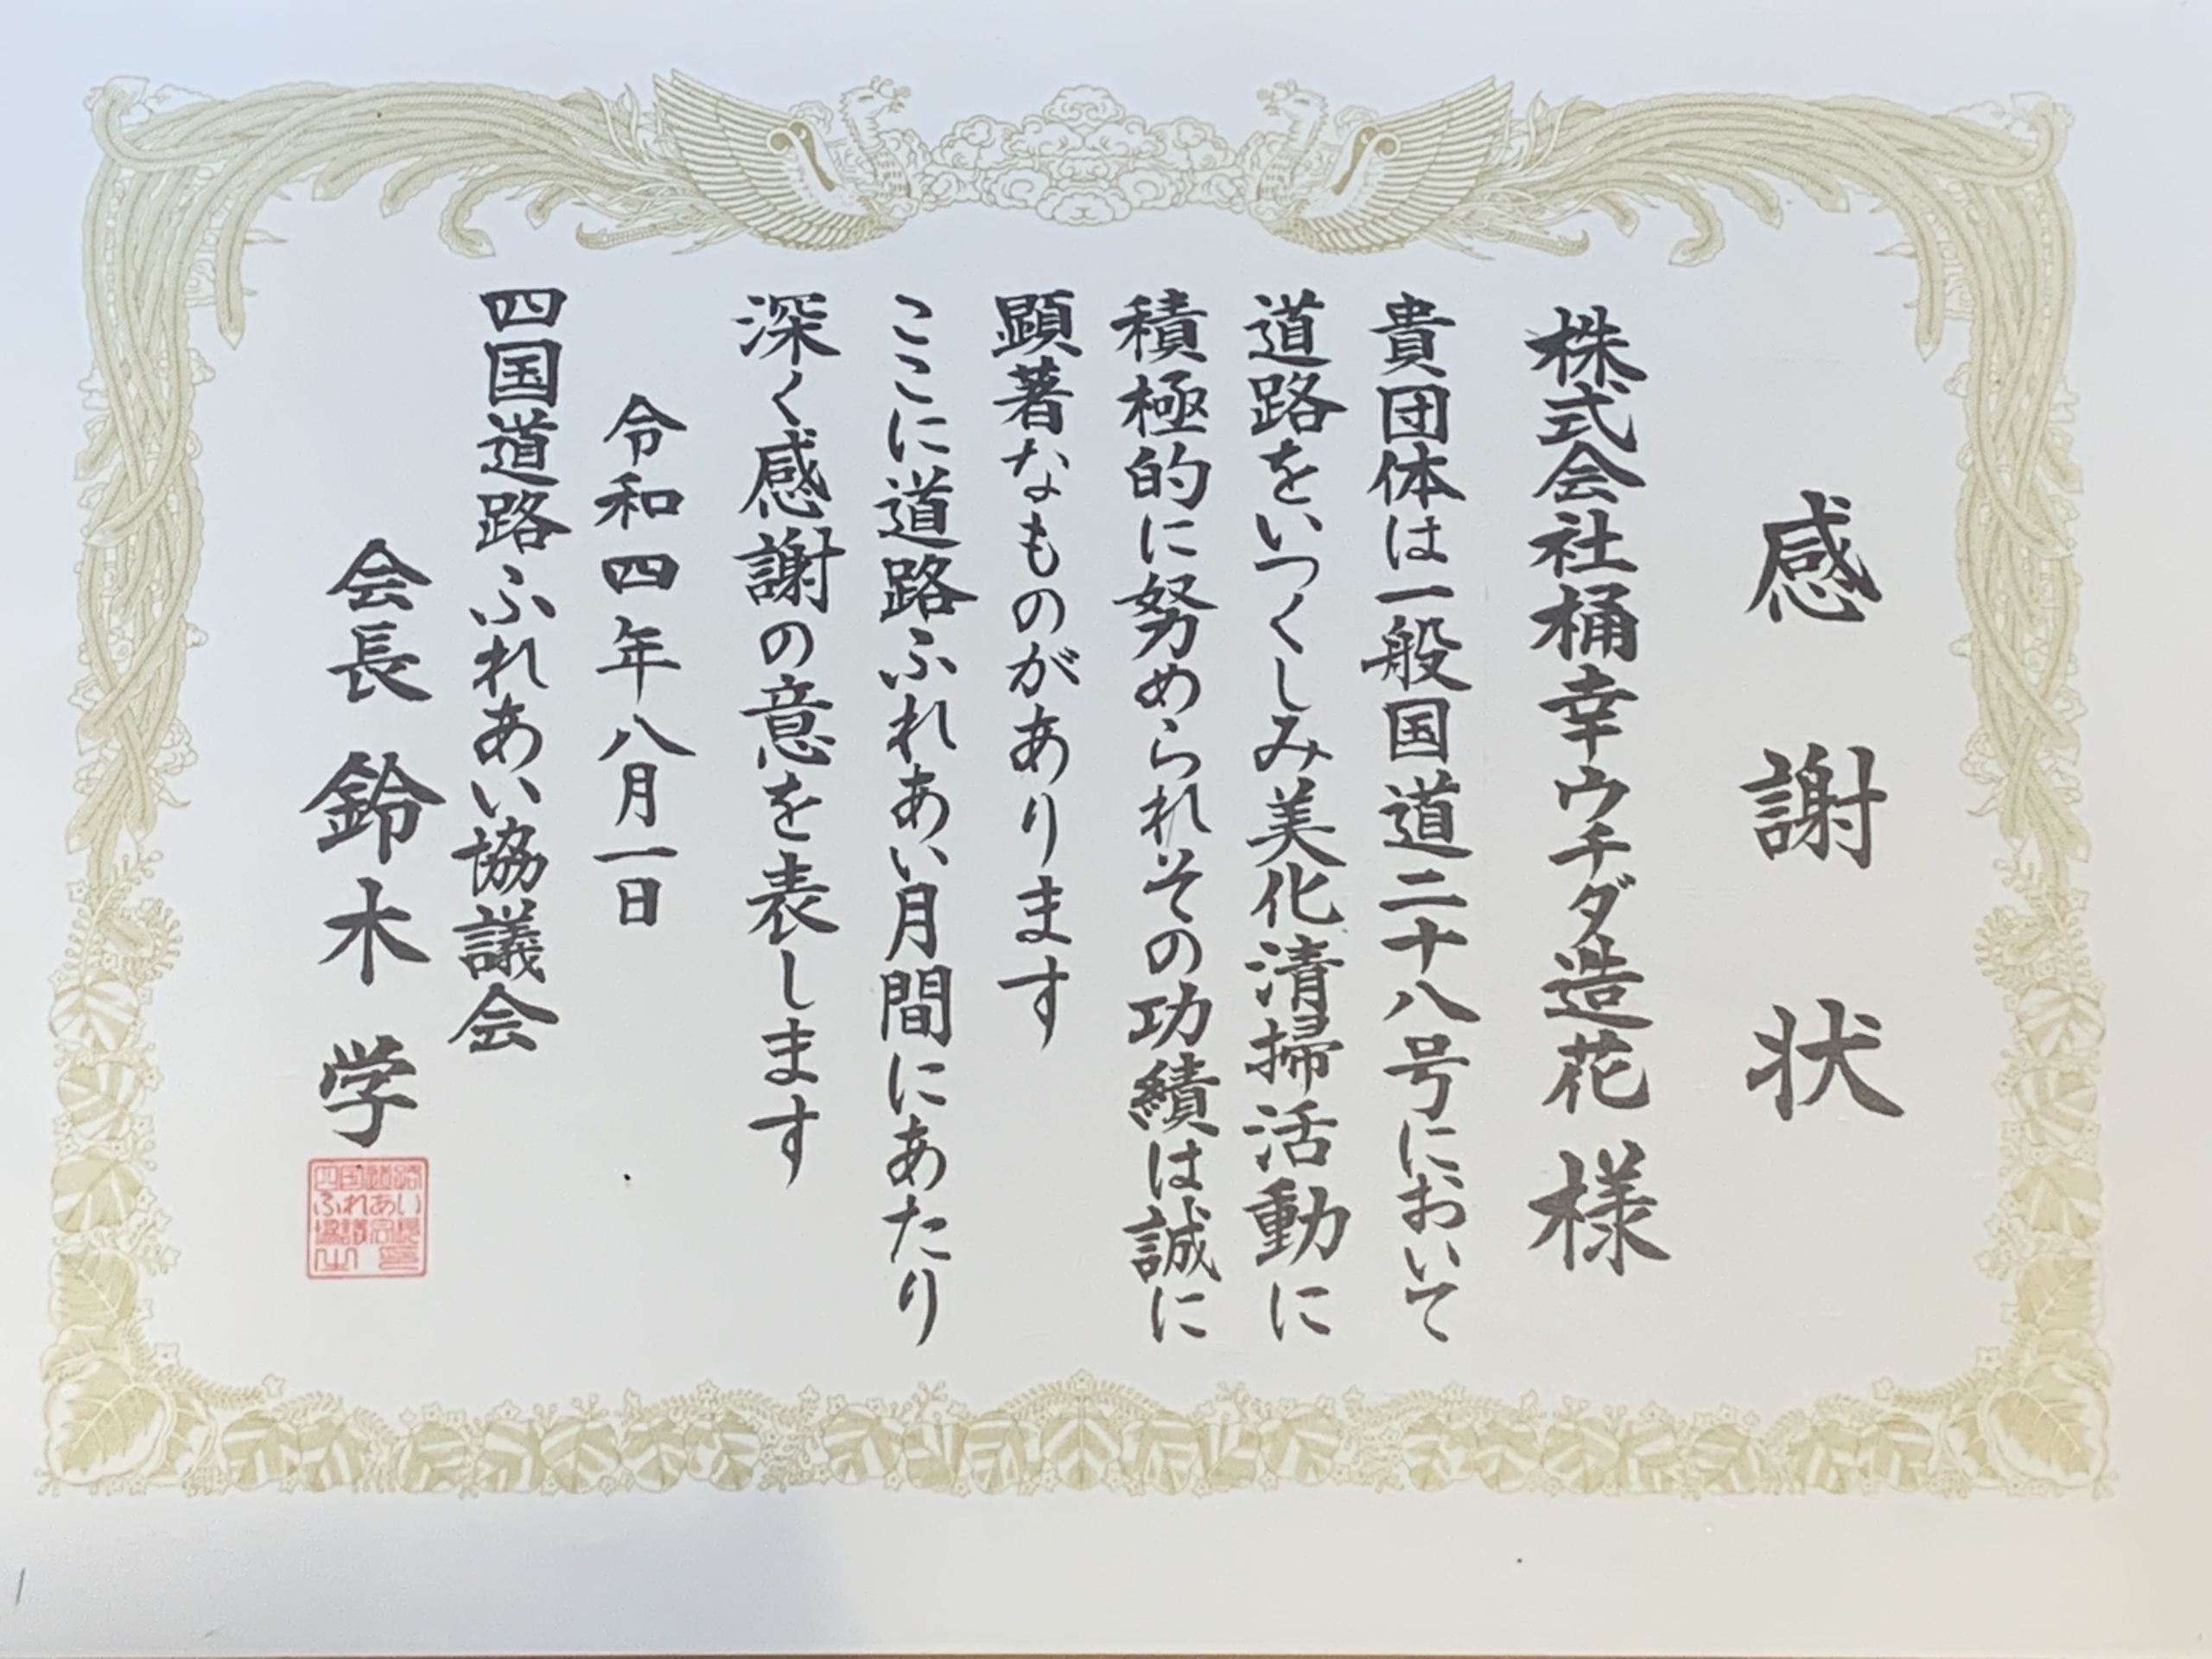 感謝状
株式会社桶幸ウチダ造花様
貴団体は一般国道二十八号において
道路をいつくしみ美化清掃活動に
積極的に努められその功績は誠に
顕著なものがあります
ここに道路ふれあい月間にあたり
深く感謝の意を表します
令和四年八月一日
四国道路ふれあい協議会
会長 鈴木 学
四国道路
ふれあい
協議会長
之印